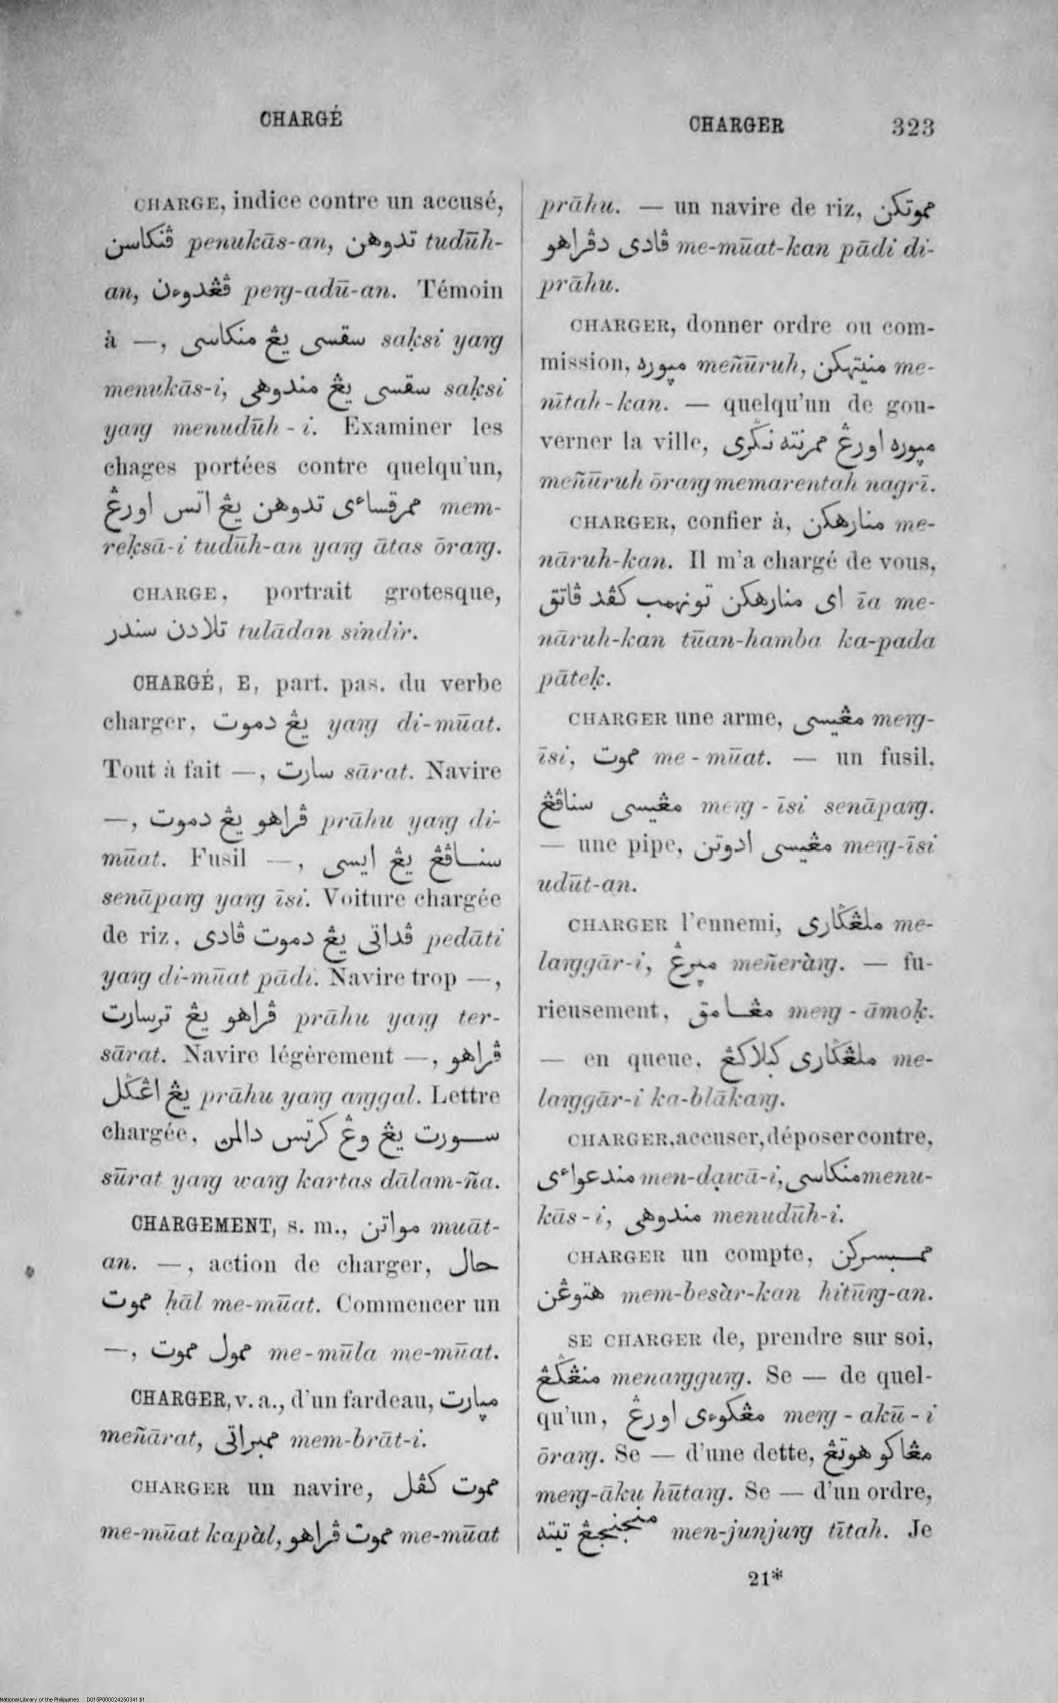 CHARGÉ
CHARGER 323
CHARGE, indice contre un accusé,
ڤنكاسن penukās-an, تدوهن tudūh-
an, ڤڠدوءن peng-adū-an. Témoin
à —, سقسى يڠ منكاسى saḳsi yang
menukās-i, سقسى يڠ مندوهى saḳsi
yang menudūh-i. Examiner les
chages portées contre quelqu'un,
ممرقساءى تدوهن يڠ اتس اورڠ mem-
reḳsā-i tudūh-an yang ātas ōrang.
CHARGE, portrait grotesque,
تلادن سندر tulādan sindir.
CHARGÉ, E, part. pas. du verbe
charger, يڠ دموت yang di-mūat.
Tout à fait —, سارت sārat. Navire
—, ڤراهو يڠ دموت prāhu yang di-
mūat. Fusil —, سناڤڠ يڠ ايسى
senāpang yang īsi. Voiture chargée
de riz, ڤداتى يڠ دموت ڤادى pedāti
yang di-mūat pādi. Navire trop —,
ڤراهو يڠ ترسارت prāhu yang ter-
sārat. Navire légèrement —, ڤراهو
يڠ اڠݢل prāhu yang anggal. Lettre
chargée, سورت يڠ وڠ كرتس دالمن
sūrat yang wang kartas dālam-ña.
CHARGEMENT, s. m., مواتن muāt-
an. —, action de charger, حال
مموت ḥāl me-mūat. Commencer un
—, ممول مموت me-mūla me-mūat.
CHARGER, v. a., d'un fardeau, مڽارت
meñārat, ممبراتى mem-brāt-i.
CHARGER un navire, مموت كڤل
me-mūat kapàl, مموت ڤراهو me-mūat
prāhu. — un navire de riz, مموتكن
ڤادى دڤراهو me-mūat-kan pādi di-
prāhu.
CHARGER, donner ordre ou com-
mission, مڽوره meñūruh, منيتهكن me-
nītah-kan. — quelqu'un de gou-
verner la ville, مڽوره اورڠ ممرنته نݢرى
meñūruh ōrang memarentah nagrī.
CHARGER, confier à, منارهكن me-
nāruh-kan. Il m'a chargé de vous,
اى منارهكن تونهمب كڤد ڤاتق īa me-
nāruh-kan tūan-hamba ka-pada
pāteḳ.
CHARGER une arme, مڠيسى meng-
īsi, مموت me-mūat. — un fusil,
مڠيسى سناڤڠ meng-īsi senāpang.
— une pipe, مڠيسى ادوتن meng-īsi
udūt-an.
CHARGER l'ennemi, ملڠݢارى me-
langgār-i, مڽرڠ meñeràng. — fu-
rieusement, مڠامق meng-āmoḳ.
— en queue, ملڠݢارى كبلاكڠ me-
langgār-i ka-blākang.
CHARGER, accuser, déposer contre,
مندعواءى men-dạwā-i, منكاسى menu-
kās-i, مندوهى menudūh-i.
CHARGER un compte, ممبسركن
هتوڠن mem-besàr-kan hitūng-an.
SE CHARGER de, prendre sur soi,
منڠݢڠ menanggung. Se — de quel-
qu'un, مڠكوءى اورڠ meng-akū-i
ōrang. Se — d'une dette, مڠاكو هوتڠ
meng-āku hūtang. Se — d'un ordre,
منجنجڠ تيته men-junjung tītah. Je
21*
National Library of the Philippines